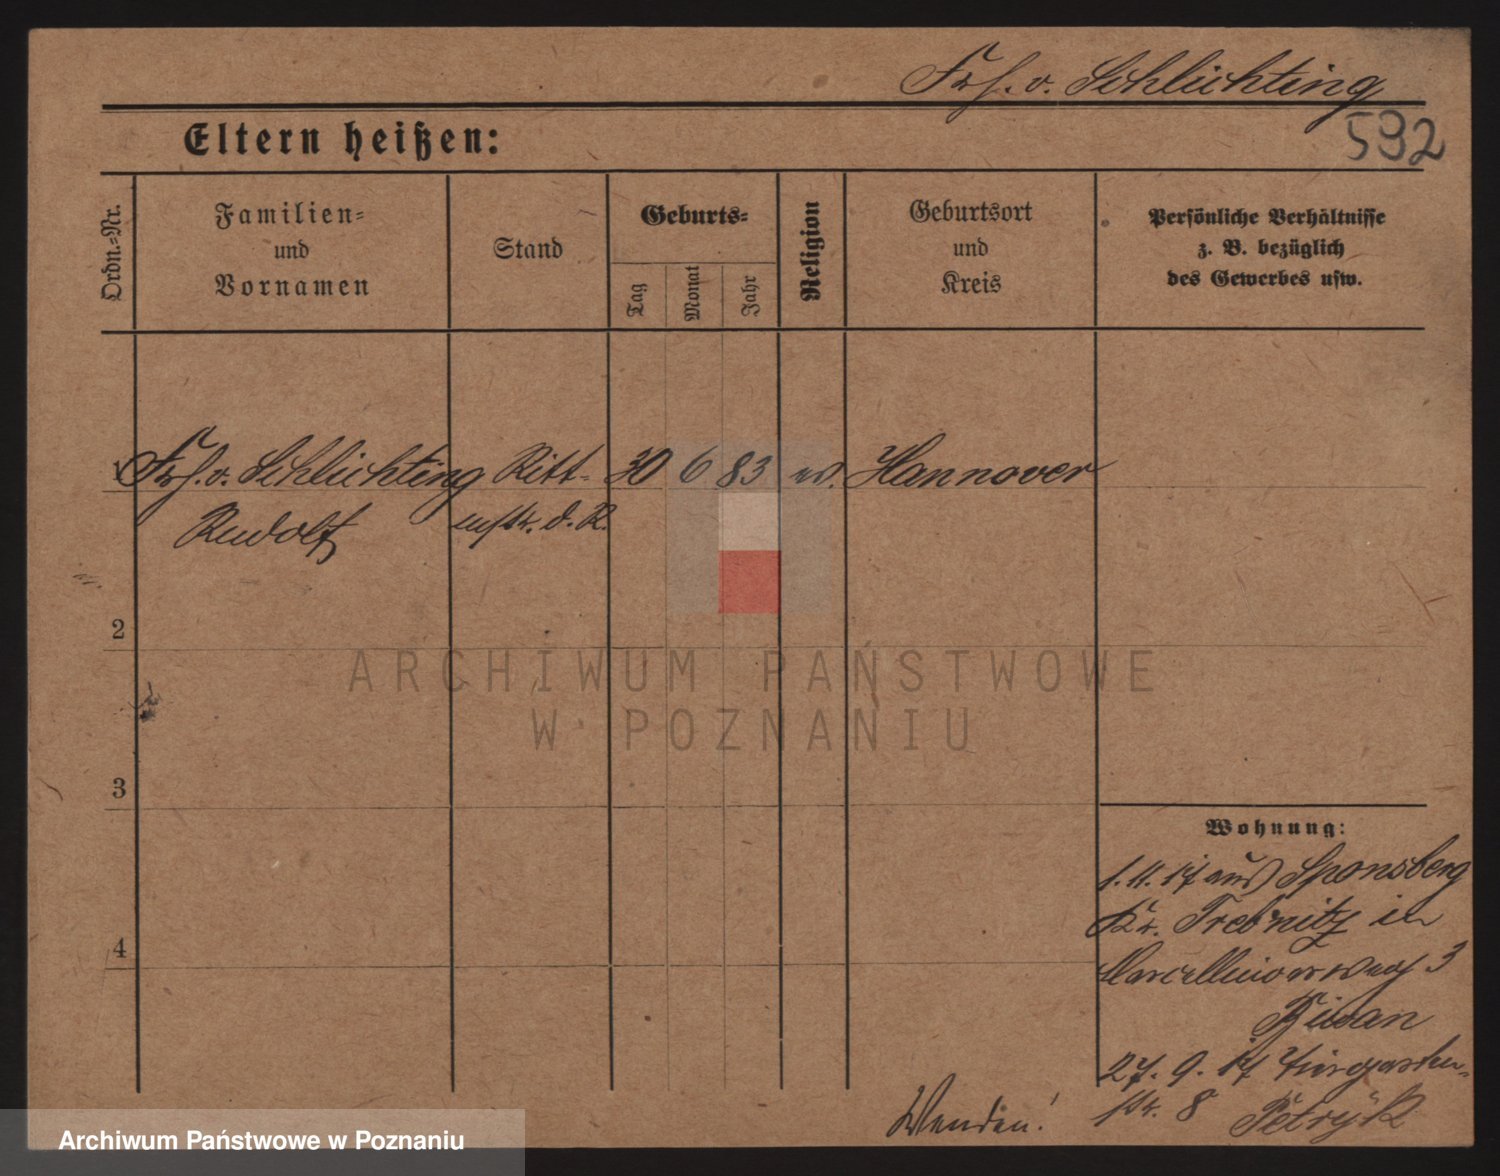 Frh. v. Schlichting
592
Eltern heißen:
Ordn.-Nr.
Familien-
und
Vornamen
Stand
Geburts-
Tag
Monat
Jahr
Religion
Geburtsort
und
Kreis
Persönliche Verhältnisse
z. B. bezüglich
des Gewerbes usw.
1 Frh. v. Schlichting Ritt- 30 6 83 ev. Hannover
Rudolf mstr. d. R.
2
3
4
ARCHIWUM PAŃSTWOWE
W POZNANIU
Wohnung:
1.11.17 aus Sponsberg
Kr. Trebnitz in
3
27. 9. 17 Tiergarten-
str. 8
Wenden!
Archiwum Państwowe w Poznaniu